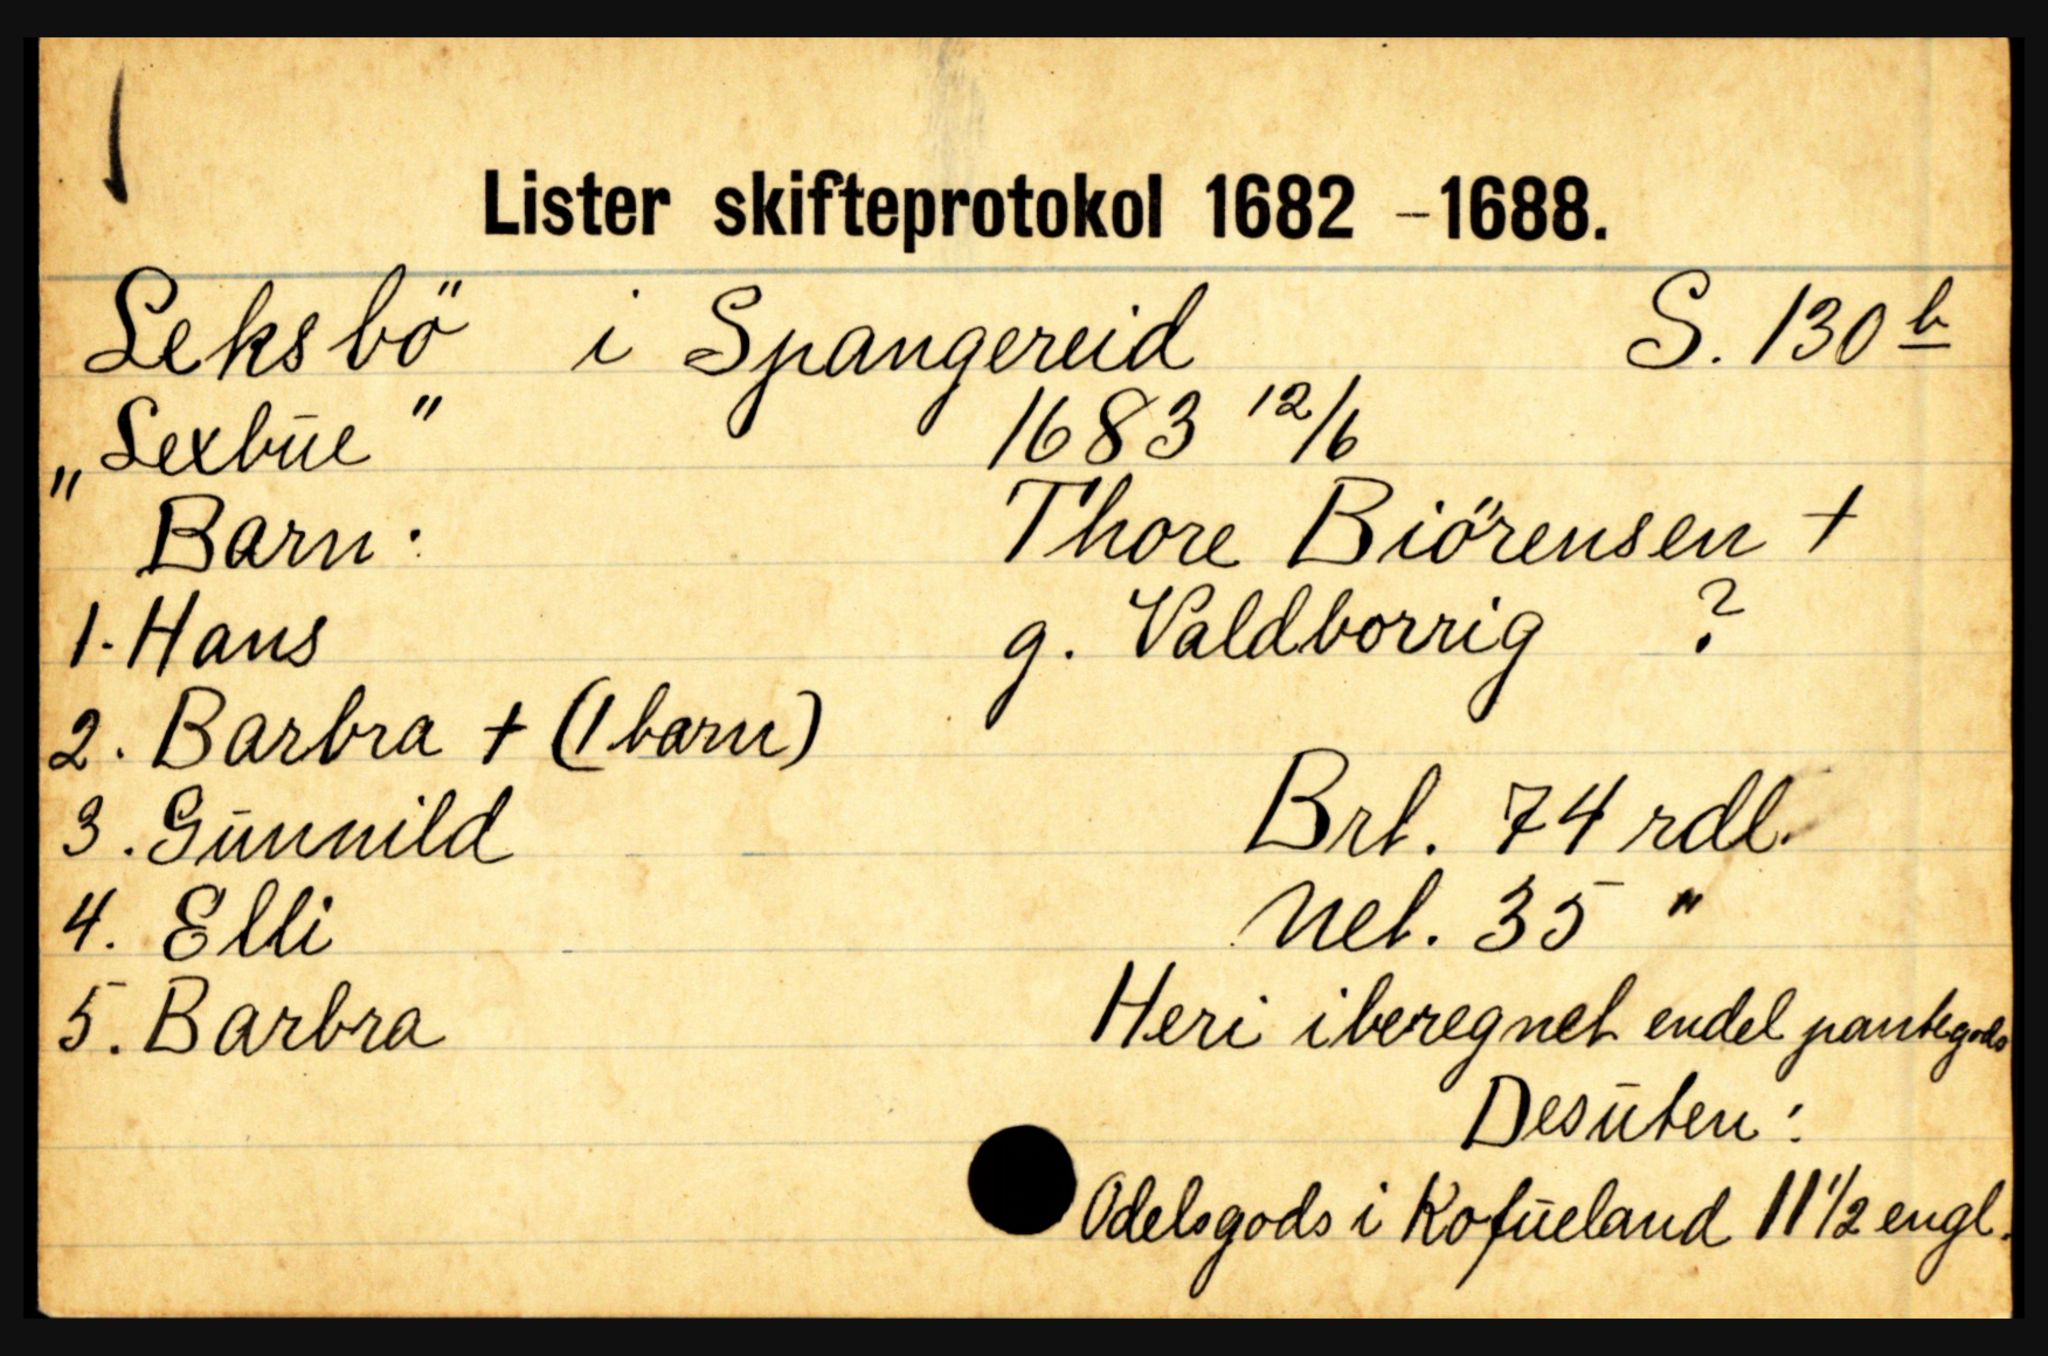 Lister skifteprotokol 1682 - 1688.
Leksbö i Spangereid S. 130 b
„Lexbūe" 1683 12/6
Barn: Thore Biörensen +
1. Hans g. Valdborrig ?
2. Barbra + (1 barn)
3. Gūnnild Brt. 74 rdl.
4. Elli Net. 35 "
5. Barbra Heri iberegnet endel pantegods
Desūten:
Odelsgods i Kofūeland 11 1/2 engl.